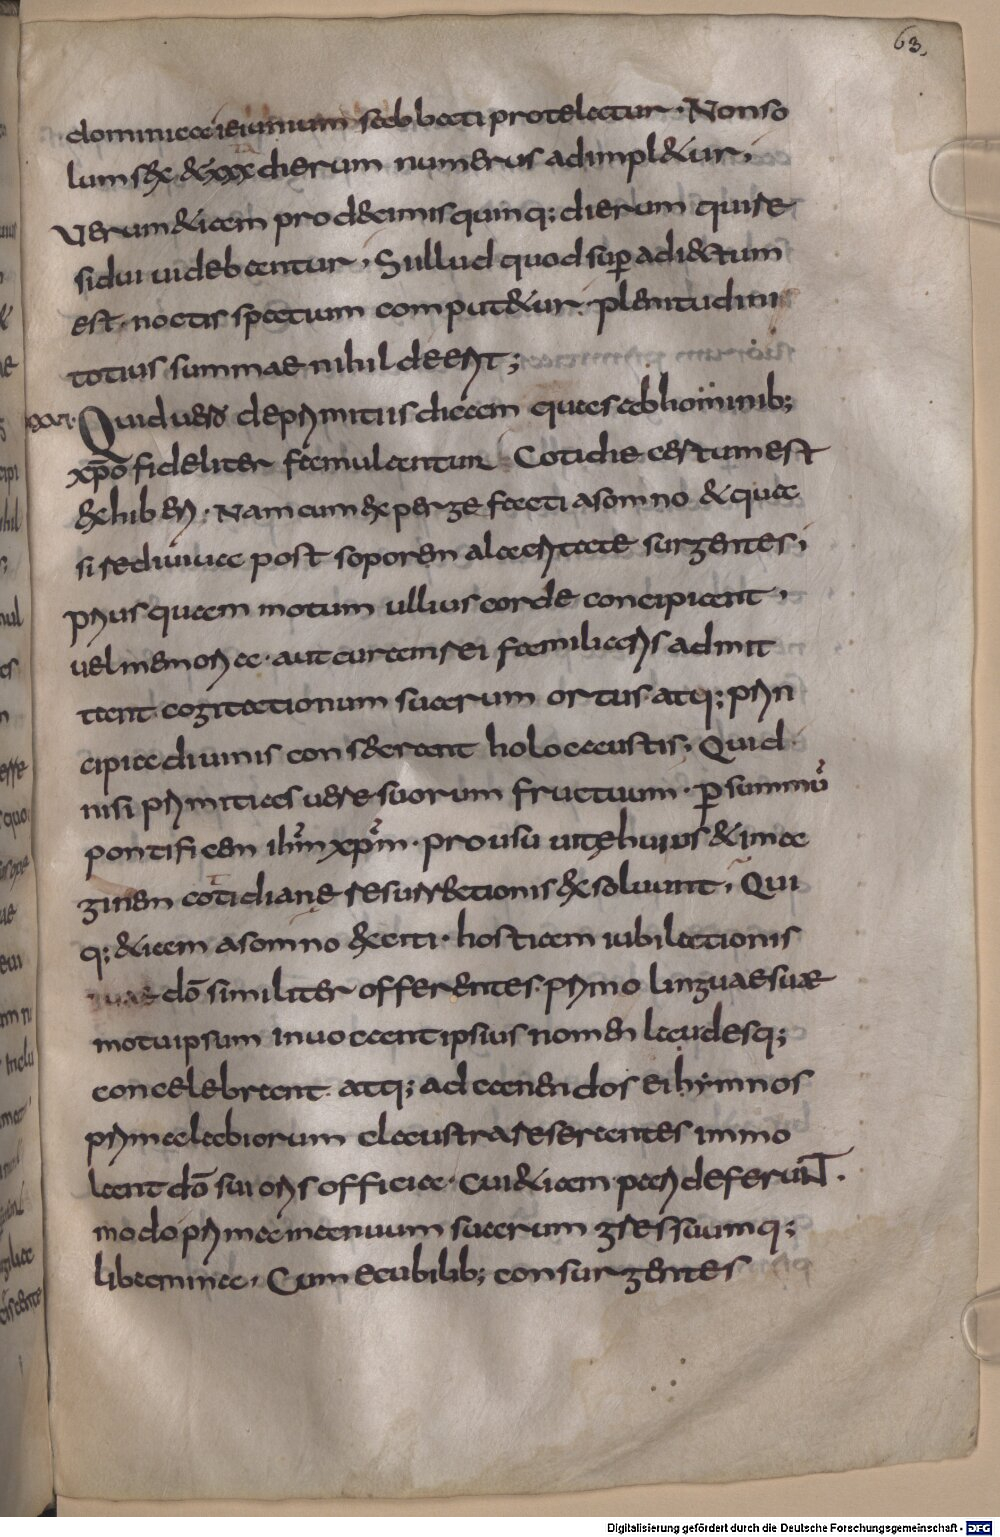 63.
dominicae ieiunium sabbati protelatur · Non so
lum s;hęc &xxx dierum numerus adimpl&ur ·
Verum &iam pro ddecimis quinq; dierum qui re
sidui uidebantur · Si illud quod sup̄ adiectum
est · noctis spatium comput&ur · plenitudini
totius summae nihil deerit ;
XXVI· Quid uero de primitiis dicam quas ab hominib;
xp̄o fideliter famulantur Cotidie certum est
exhiberi · Nam cum expergefacti a somno & qua
si rediuiua post soporem alacritate surgentes ·
prius quam motum ullius corde concipiant ·
uel memoria · aut curam rei familiaris admit
tant cogitationum suarum ortus atq; prin
cipia diuinis conserant holocaustis · Quid
nisi primitias uere suorum fructuum · p̄ summū
pontificem ih̄m xp̄m · pro usu uitę huius & ima
ginem cotidianę resurrectionis exsoluunt · Qui
q; &iam a somno exciti · hostiam iubilationis
suae dō similiter offerentes · primo linguae suae
motu ipsum inuocant ipsius nomen laudesq;
concelebrant atq; ad canendos ei hymnos
prima labiorum claustra reserantes immo
lant dō sui oris officia · Cui &iam pari deferunt ·
modo prima manuum suarum gressuumq;
libamina · Cum e cubilib; consurgentes
Digitalisierung gefördert durch die Deutsche Forschungsgemeinschaft - DFG